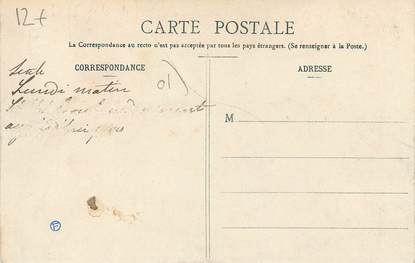 12+
CARTE POSTALE
La Correspondance au recto n'est pas acceptée par tous les pays étrangers. (Se renseigner à la Poste.)
CORRESPONDANCE
01)
Lundi matin
ADRESSE
M